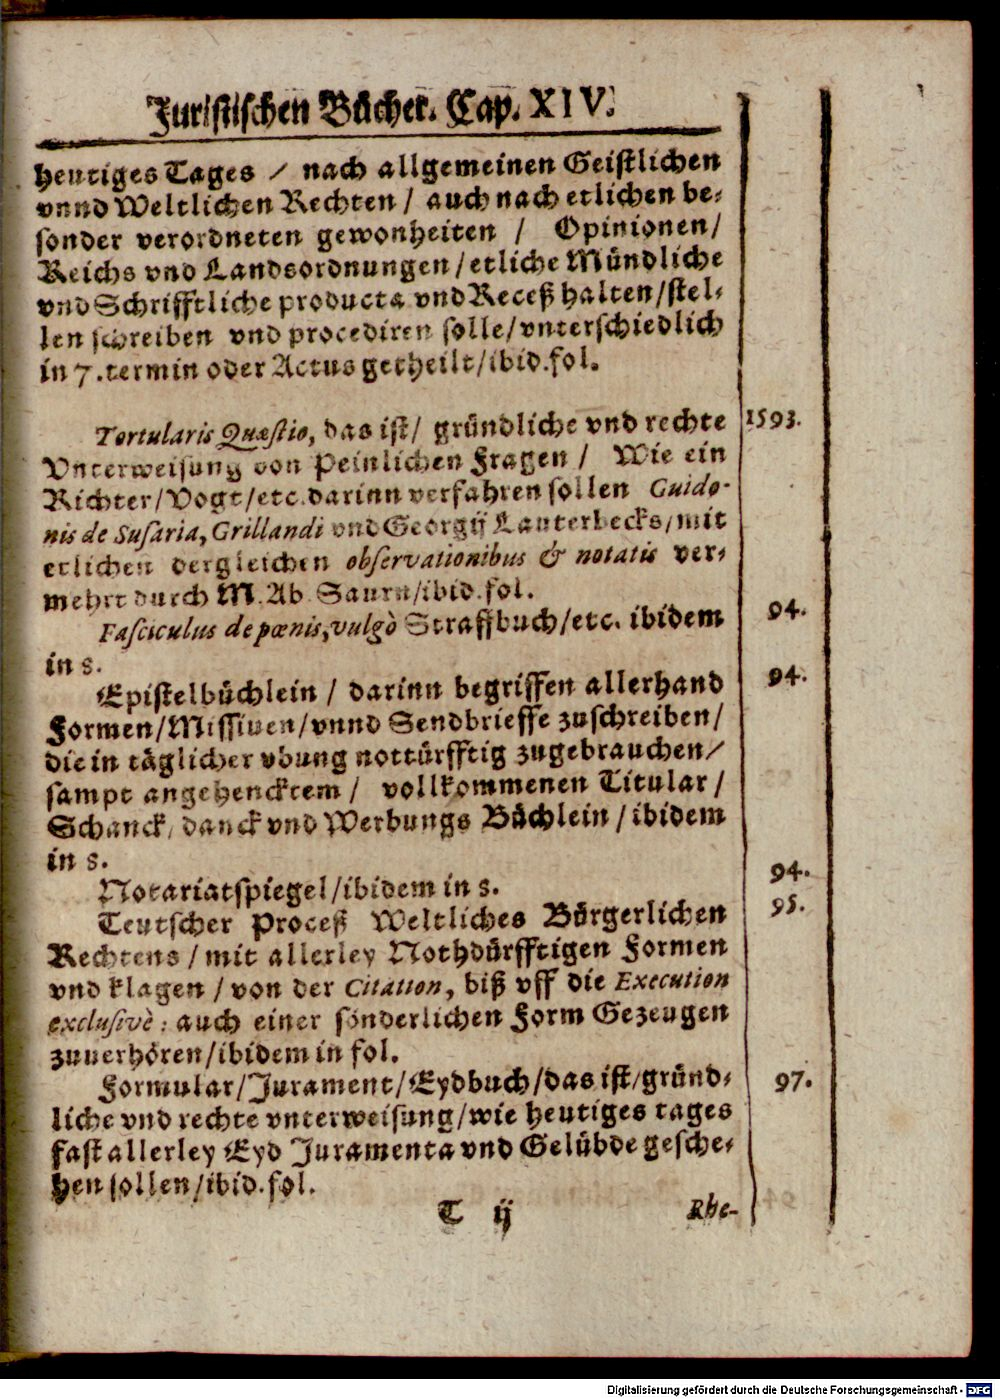 Juristischen Bücher. Cap. XIV.
heutiges Tages / nach allgemeinen Geistlichen
vnnd Weltlichen Rechten / auch nach etlichen be-
sonder verordneten gewonheiten / Opinionen /
Reichs vnd Landsordnungen / etliche Mündliche
vnd Schrifftliche producta vnd Receß halten / stel-
len schreiben vnd procediren solle / vnterschiedlich
in 7. termin oder Actus getheilt / ibid. fol.
Tortularis Quæstio, das ist / gründliche vnd rechte 1593.
Vnterweisung von Peinlichen Fragen / Wie ein
Richter / Vogt / etc. darinn verfahren sollen Guido-
nis de Susaria, Grillandi vnd Georgij Lauterbecks / mit
etlichen dergleichen observationibus & notatis ver-
mehrt durch M. Ab. Saurn / ibid. fol.
Fasciculus de pœnis, vulgò Straffbuch / etc. ibidem 94.
in 8.
Epistelbüchlein / darinn begriffen allerhand 94.
Formen / Missiuen / vnnd Sendbrieffe zuschreiben /
die in täglicher vbung nottürfftig zugebrauchen /
sampt angehencktem / vollkommenen Titular /
Schanck / danck vnd Werbungs Büchlein / ibidem
in 8.
Notariatspiegel / ibidem in 8. 94.
Teutscher Proceß Weltliches Bürgerlichen 95.
Rechtens / mit allerley Nothdürfftigen Formen
vnd klagen / von der Citation, biß vff die Execution
exclusivè: auch einer sönderlichen Form Gezeugen
zuuerhören / ibidem in fol.
Formular / Jurament / Eydbuch / das ist / gründ- 97.
liche vnd rechte vnterweisung / wie heutiges tages
fast allerley Eyd Juramenta vnd Gelübde gesche-
hen sollen / ibid. fol.
T ij Rhe-
Digitalisierung gefördert durch die Deutsche Forschungsgemeinschaft - DFG